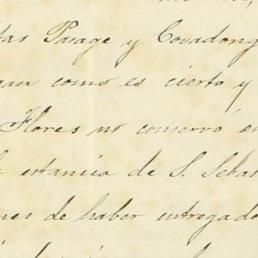 tas Pasage y Covadong
can como es cierto y
Flores no conservó en
estancia de S. Sebas
ues de haber entregado